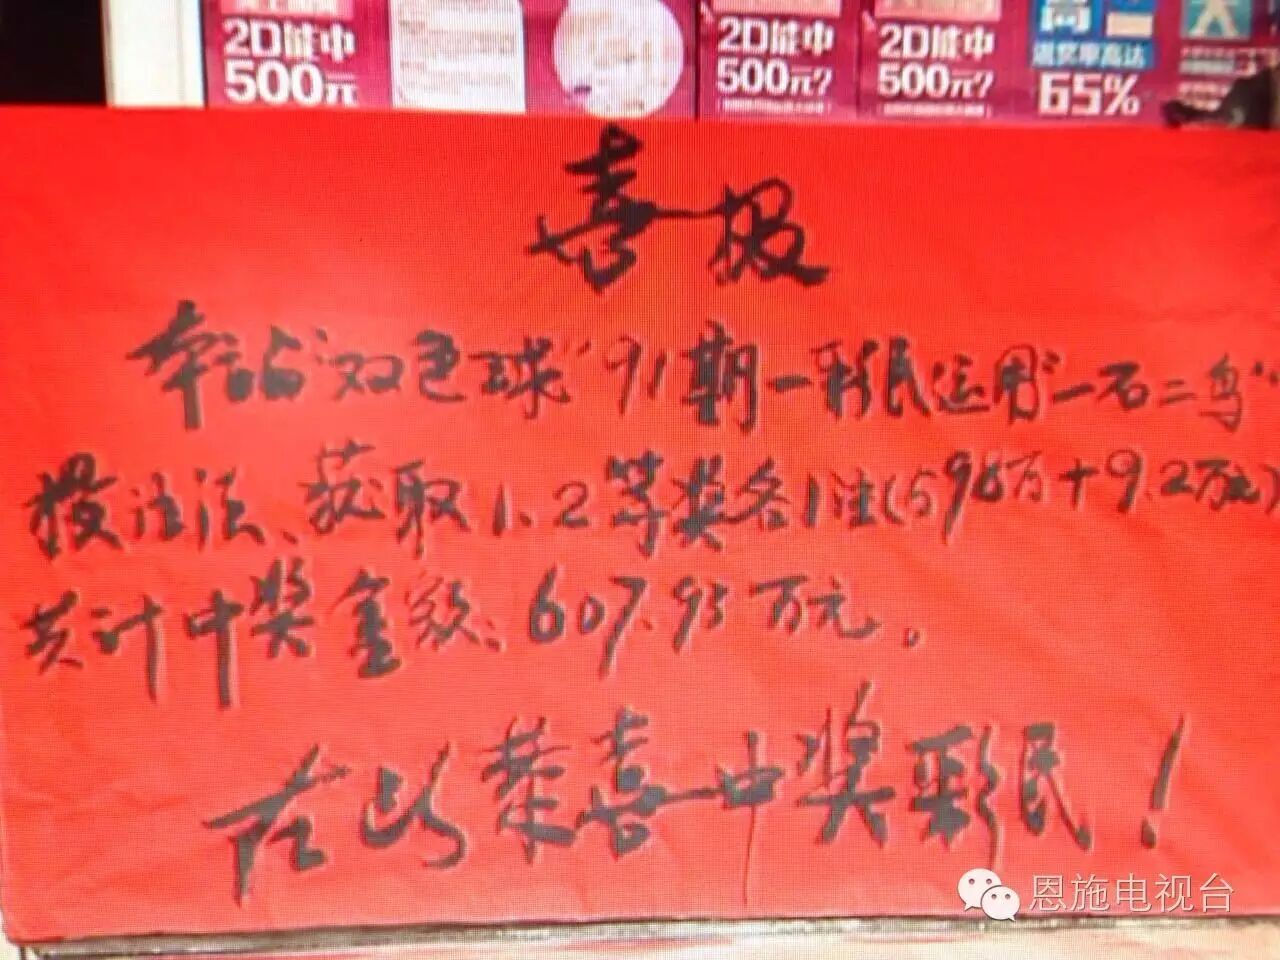 2D能中
500元
2D能中
500元?
2D能中
500元?
高
返奖率高达
65%
喜报
本站"双色球"91期一彩民运用"一石二鸟"
投注法、获取1.2等奖各1注(598万+9.2万元)
共计中奖金额:607.93万元。
在此恭喜中奖彩民!
恩施电视台